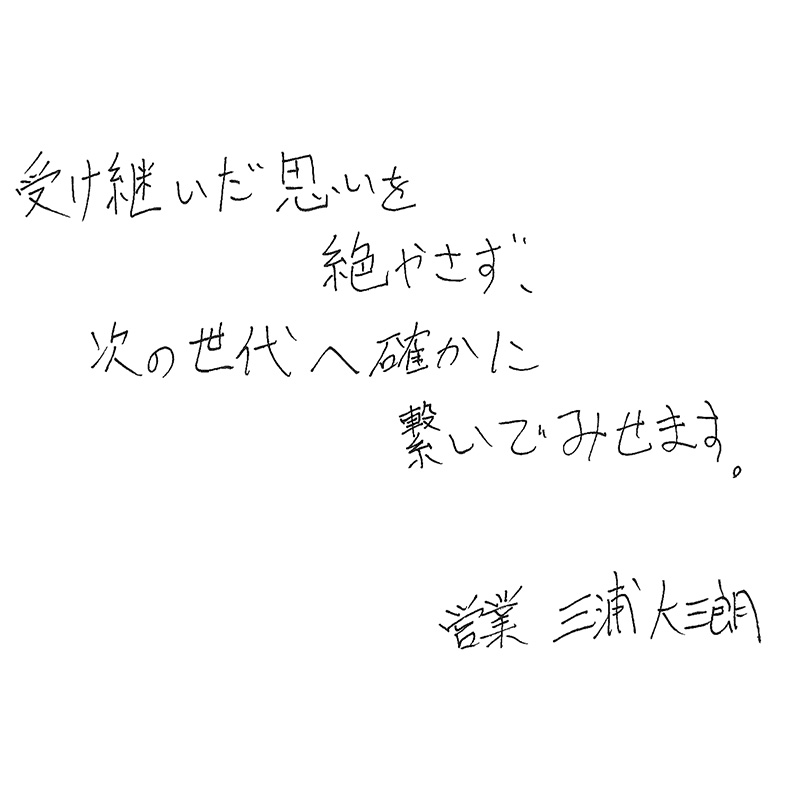 受け継いだ思いを
絶やさず、
次の世代へ確かに
繋いでみせます。
営業 三浦大三朗